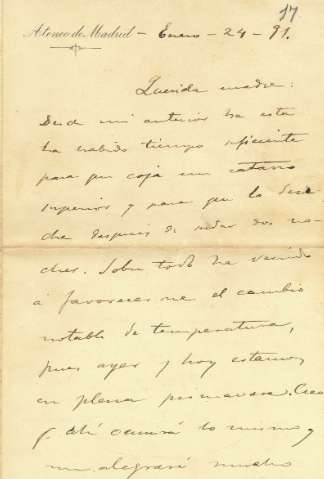 17
Ateneo de Madrid - Enero - 24 - 91.
Querida madre:
Desde mi anterior ha esta
ha habido tiempo suficiente
para que coja un catarro
superior y para que lo dese
che después de sudar dos no-
ches. Sobre todo ha venido
á favorecerme el cambio
notable de temperatura,
pues ayer y hoy estamos
en plena primavera. Creo
q. ahí ocurrirá lo mismo y
me alegraré mucho